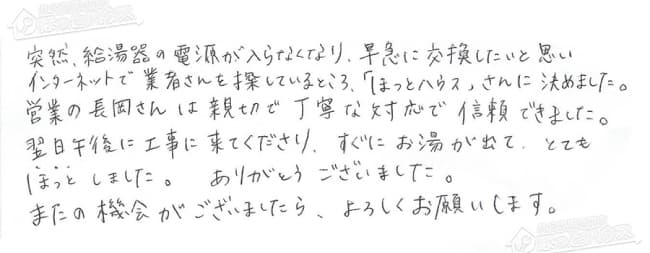 突然、給湯器の電源が入らなくなり、早急に交換したいと思い
インターネットで業者さんを探しているところ、「ほっとハウス」さんに決めました。
営業の長岡さんは親切で丁寧な対応で信頼できました。
翌日午後に工事に来てくださり、すぐにお湯が出て、とても
ほっとしました。 ありがとうございました。
またの機会がございましたら、よろしくお願いします。